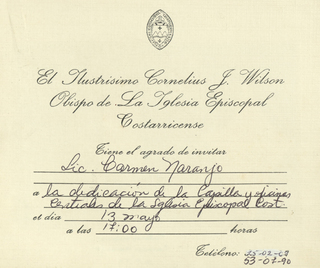 El Ilustrisimo Cornelius J. Wilson
Obispo de La Iglesia Episcopal
Costarricense
Tiene el agrado de invitar
Lic. Carmen Naranjo
a la dedicación de la Capilla y oficinas
Centrales de la Iglesia Episcopal Cost.
el día 13 mayo
a las 17:00 horas
Teléfono: 25-02-
53-07-90